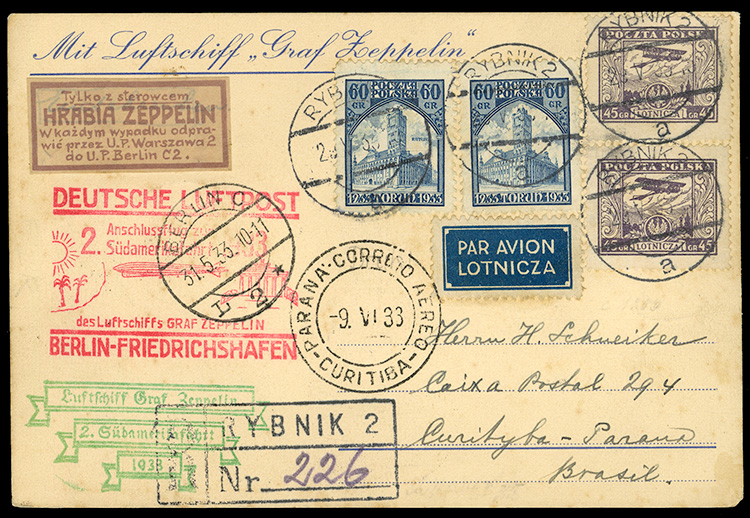 Mit Luftschiff „Graf Zeppelin"
Tylko z sterowcem
HRABIA ZEPPELIN
W każdym wypadku odpra-
wić przez U.P. Warszawa 2
do U.P. Berlin C2.
RYBNIK 2
a
RYBNIK 2
a
RYBNIK 2
RYBNIK 2
60 POCZTA POLSKA 60
GR GR
1233 TORUŃ 1933
60 POCZTA POLSKA 60
GR GR
1233 TORUŃ 1933
POCZTA POLSKA
45 GR LOTNICZA GR 45
POCZTA POLSKA
45 GR LOTNICZA GR 45
PAR AVION
LOTNICZA
DEUTSCHE LUFTPOST
2. Anschlussflug zur
Südamerikafahrt 1933
des Luftschiffs GRAF ZEPPELIN
BERLIN-FRIEDRICHSHAFEN
BERLIN C
31.5.33.10-11
PARANA-CORREIO AEREO
-9. VI 33
-CURITIBA-
Herrn H. Schweiker
Caixa Postal 294
Curityba - Parana
Brasil.
Luftschiff Graf Zeppelin
2. Südamerikafahrt
1933
RYBNIK 2
Nr. 226